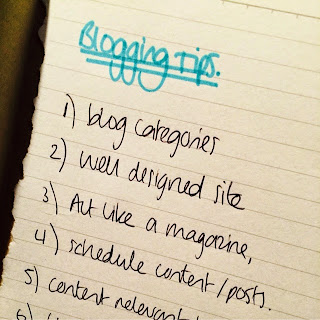 Blogging Tips.
1) blog categories
2) well designed site
3) Act like a magazine,
4) schedule content/posts.
5) content relevant
6)